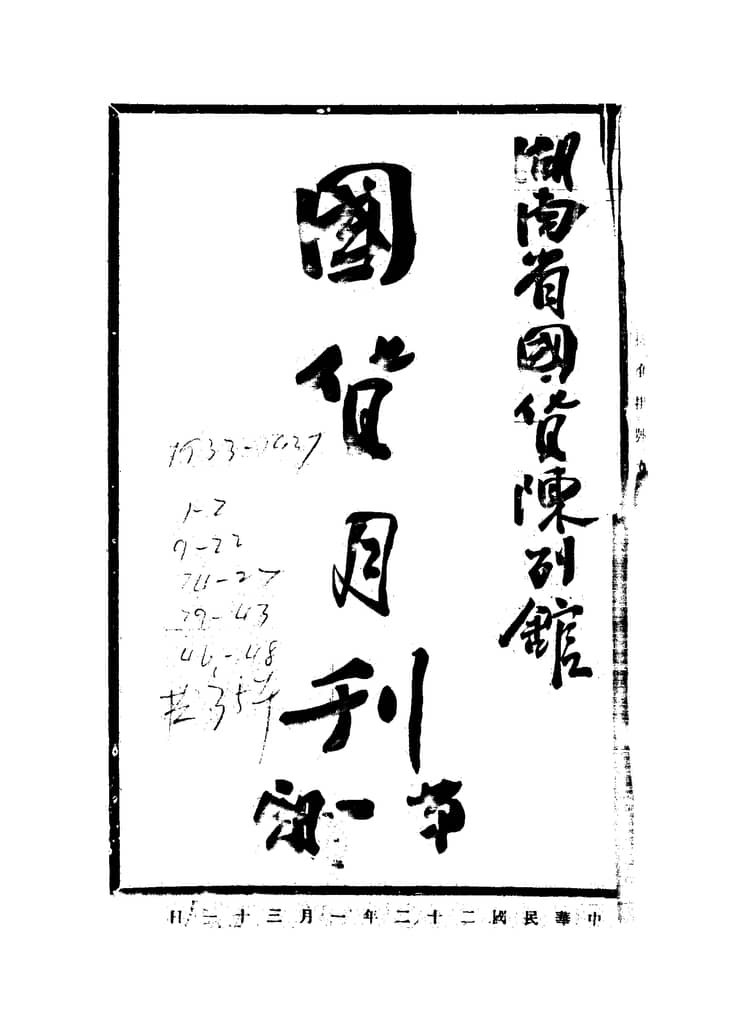 湖南省國貨陳列館
國貨月刊
第一期
中華民國二十二年一月三十一日
1933-1937
1-2
9-22
24-27
29-43
46-48